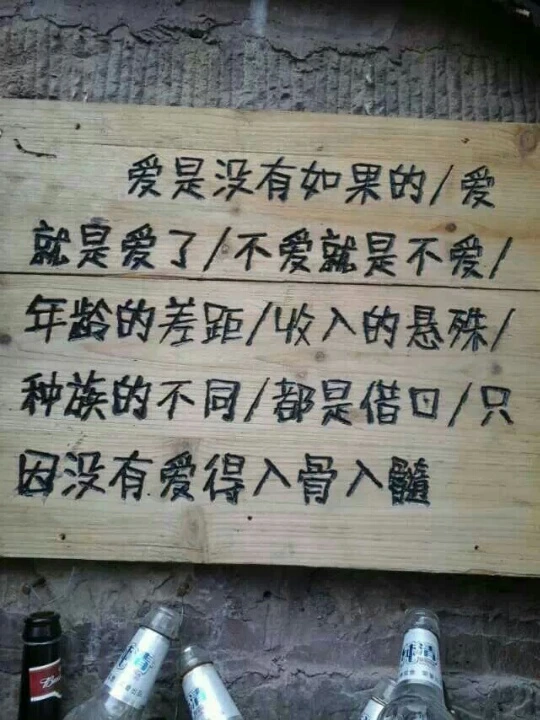 爱是没有如果的/爱
就是爱了/不爱就是不爱/
年龄的差距/收入的悬殊/
种族的不同/都是借口/只
因没有爱得入骨入髓
纯清